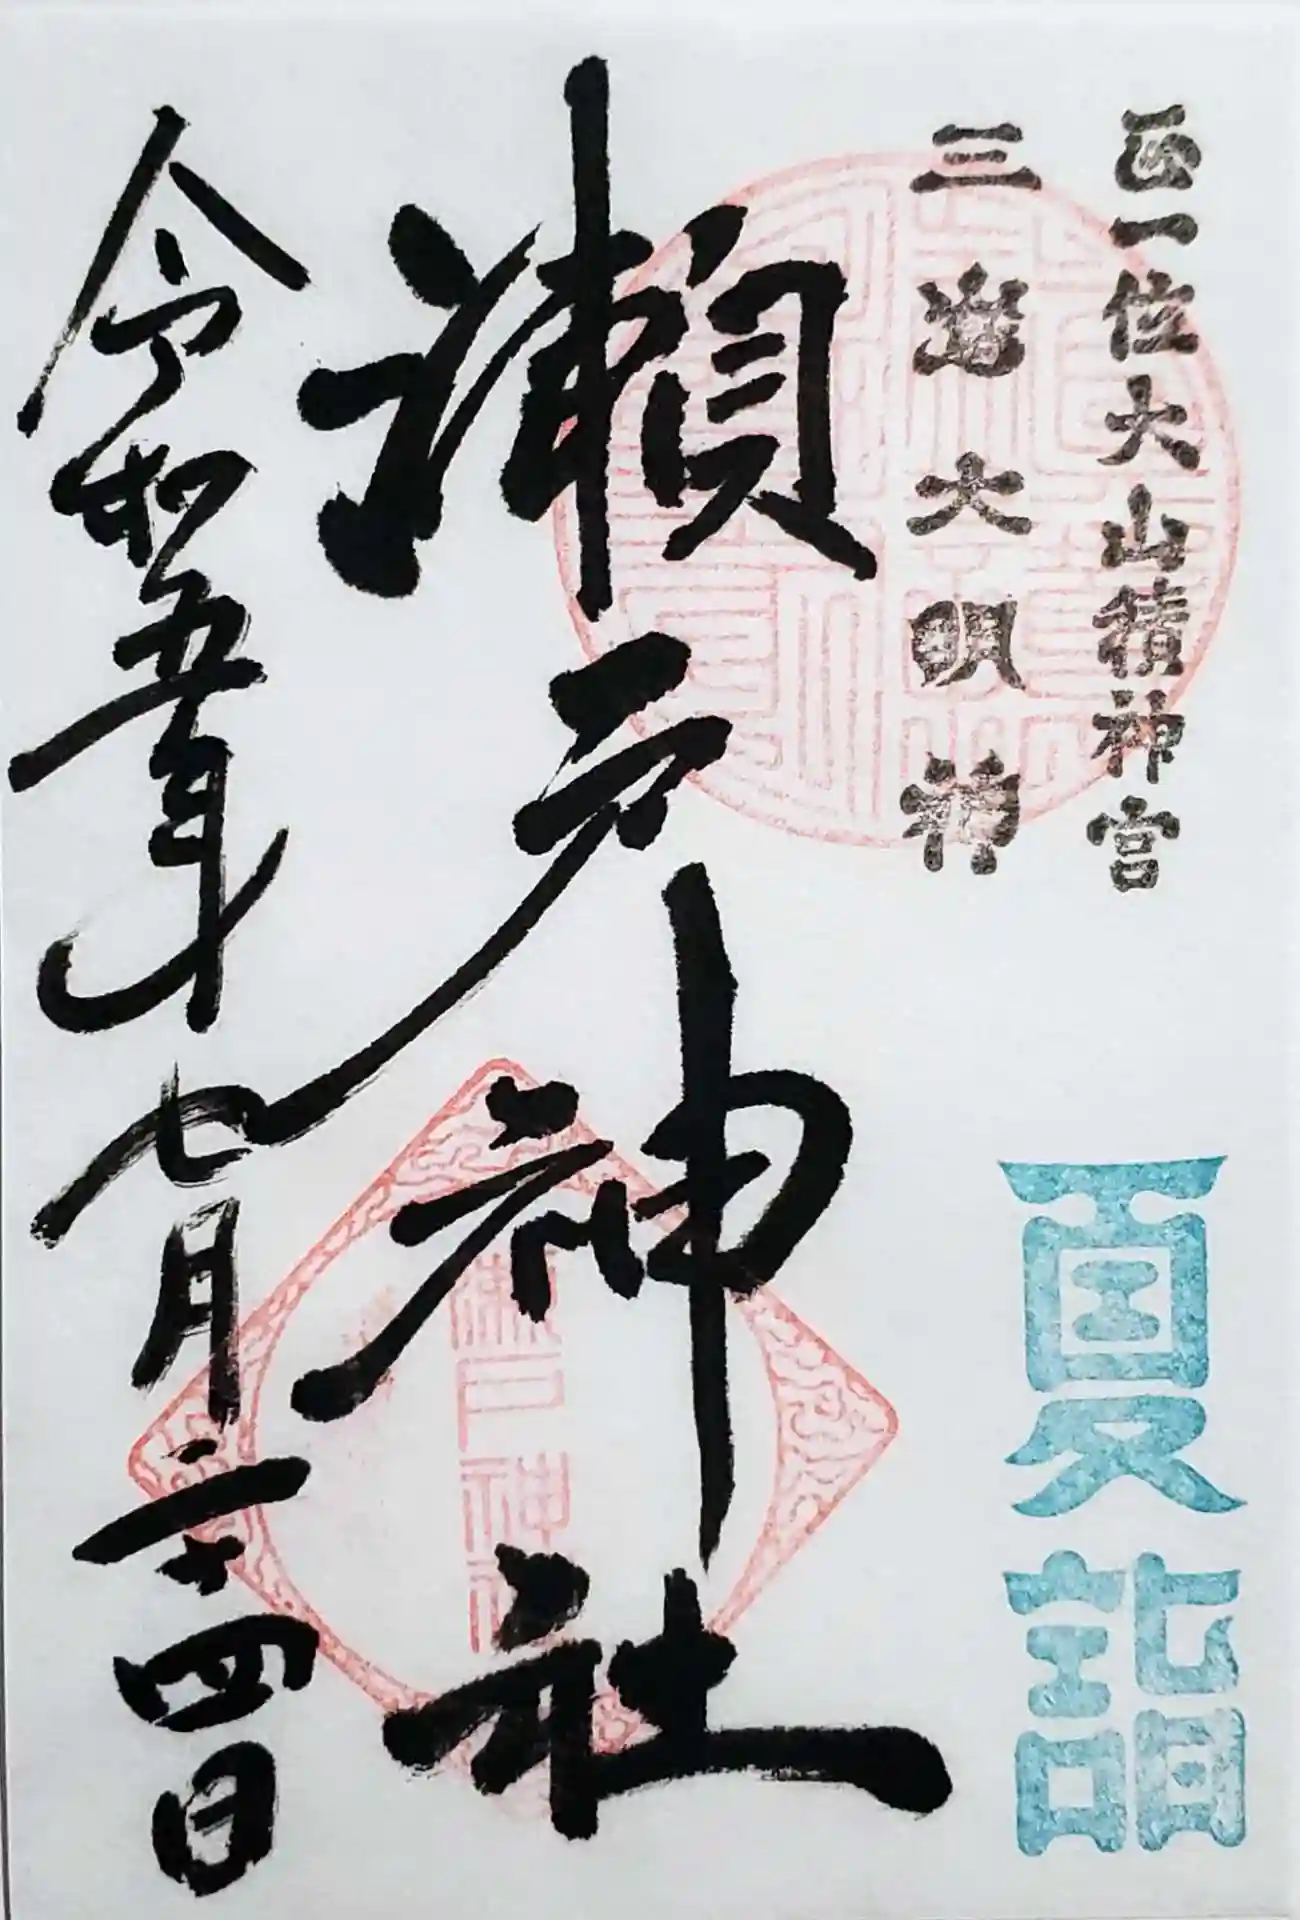 正一位大山積神宮
三嶋大明神
夏詣
瀬戸神社
瀬戸神社
令和五年七月二十四日